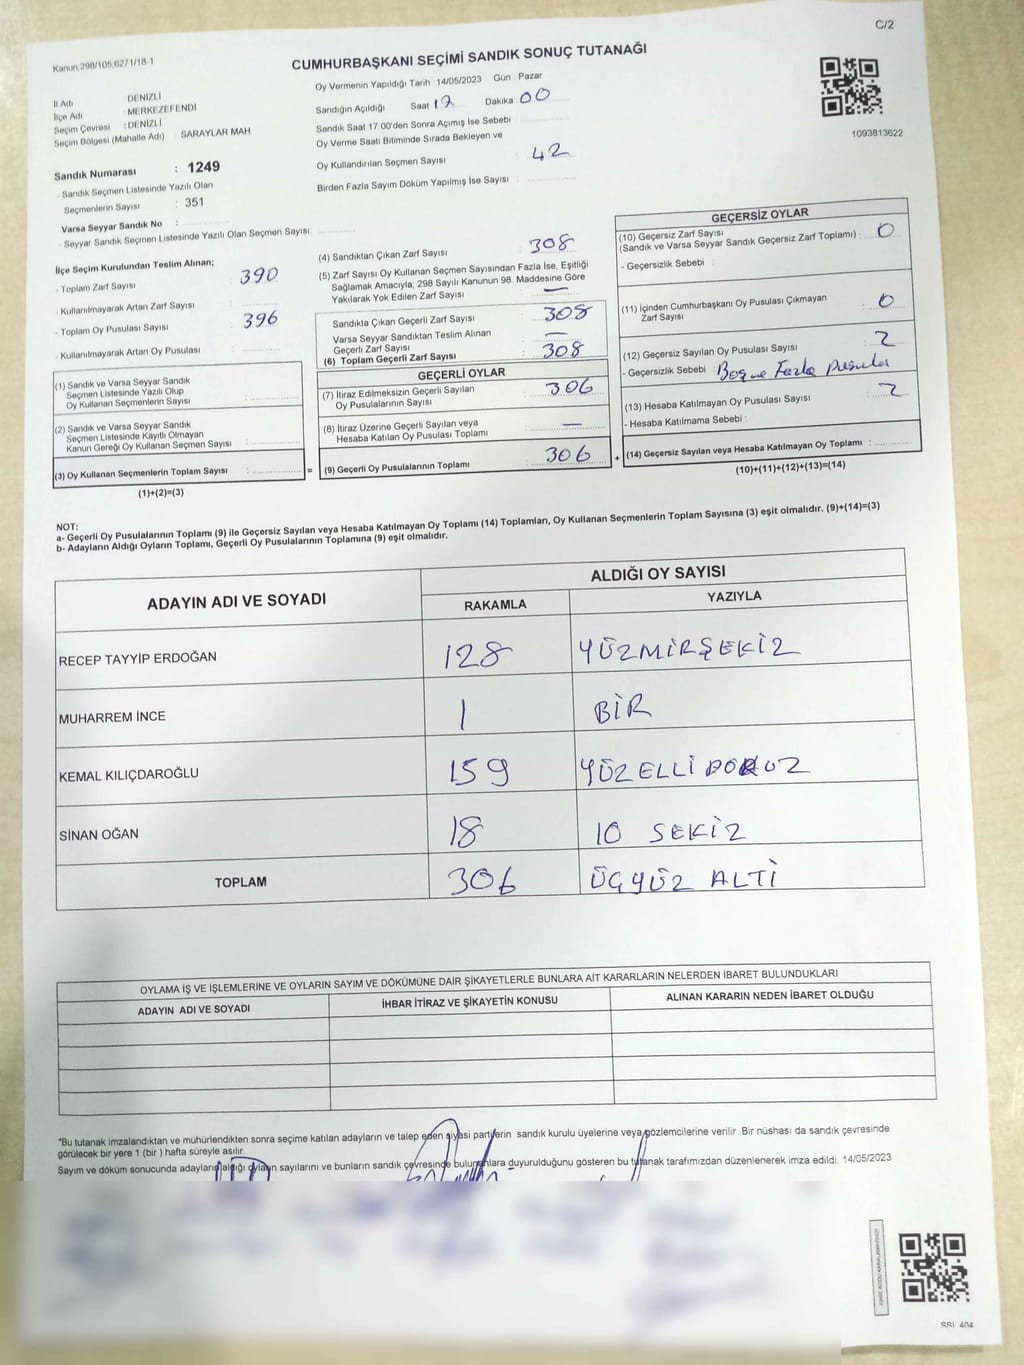 C/2
Kanun,298/105,6271/18-1
CUMHURBAŞKANI SEÇİMİ SANDIK SONUÇ TUTANAĞI
İl Adı DENİZLİ
İlçe Adı : MERKEZEFENDİ
Seçim Çevresi : DENİZLİ
Seçim Bölgesi (Mahalle Adı) : SARAYLAR MAH
Sandık Numarası : 1249
- Sandık Seçmen Listesinde Yazılı Olan
Seçmenlerin Sayısı : 351
Varsa Seyyar Sandık No :
- Seyyar Sandık Seçmen Listesinde Yazılı Olan Seçmen Sayısı:
Oy Vermenin Yapıldığı Tarih 14/05/2023 Gün : Pazar
Sandığın Açıldığı Saat 17 Dakika 00
Sandık Saat 17 00'den Sonra Açımış İse Sebebi
Oy Verme Saati Bitiminde Sırada Bekleyen ve
Oy Kullandırılan Seçmen Sayısı : 42
Birden Fazla Sayım Döküm Yapılmış İse Sayısı :
1093813622
İlçe Seçim Kurulundan Teslim Alınan;
- Toplam Zarf Sayısı : 390
- Kullanılmayarak Artan Zarf Sayısı :
- Toplam Oy Pusulası Sayısı : 396
- Kullanılmayarak Artan Oy Pusulası :
(1) Sandık ve Varsa Seyyar Sandık
Seçmen Listesinde Yazılı Olup
Oy Kullanan Seçmenlerin Sayısı :
(2) Sandık ve Varsa Seyyar Sandık
Seçmen Listesinde Kayıtlı Olmayan
Kanun Gereği Oy Kullanan Seçmen Sayısı :
(3) Oy Kullanan Seçmenlerin Toplam Sayısı : =
(1)+(2)=(3)
(4) Sandıktan Çıkan Zarf Sayısı : 308
(5) Zarf Sayısı Oy Kullanan Seçmen Sayısından Fazla İse, Eşitliği
Sağlamak Amacıyla; 298 Sayılı Kanunun 98 Maddesine Göre
Yakılarak Yok Edilen Zarf Sayısı : —
Sandıkta Çıkan Geçerli Zarf Sayısı : 308
Varsa Seyyar Sandıktan Teslim Alınan
Geçerli Zarf Sayısı : —
(6) Toplam Geçerli Zarf Sayısı : 308
GEÇERLİ OYLAR
(7) İtiraz Edilmeksizin Geçerli Sayılan
Oy Pusulalarının Sayısı : 306
(8) İtiraz Üzerine Geçerli Sayılan veya
Hesaba Katılan Oy Pusulası Toplamı : —
(9) Geçerli Oy Pusulalarının Toplamı : 306 +
GEÇERSİZ OYLAR
(10) Geçersiz Zarf Sayısı
(Sandık ve Varsa Seyyar Sandık Geçersiz Zarf Toplamı) : 0
- Geçersizlik Sebebi :
(11) İçinden Cumhurbaşkanı Oy Pusulası Çıkmayan
Zarf Sayısı : 0
(12) Geçersiz Sayılan Oy Pusulası Sayısı : 2
- Geçersizlik Sebebi : Boş ve Fazla Pusula
(13) Hesaba Katılmayan Oy Pusulası Sayısı : 2
- Hesaba Katılmama Sebebi :
(14) Geçersiz Sayılan veya Hesaba Katılmayan Oy Toplamı :
(10)+(11)+(12)+(13)=(14)
NOT:
a- Geçerli Oy Pusulalarının Toplamı (9) ile Geçersiz Sayılan veya Hesaba Katılmayan Oy Toplamı (14) Toplamları, Oy Kullanan Seçmenlerin Toplam Sayısına (3) eşit olmalıdır. (9)+(14)=(3)
b- Adayların Aldığı Oyların Toplamı, Geçerli Oy Pusulalarının Toplamına (9) eşit olmalıdır.
ADAYIN ADI VE SOYADI ALDIĞI OY SAYISI
RAKAMLA YAZIYLA
RECEP TAYYİP ERDOĞAN 128 YÜZMİRŞEKİZ
MUHARREM İNCE 1 BİR
KEMAL KILIÇDAROĞLU 159 YÜZELLİDOKUZ
SİNAN OĞAN 18 10 SEKİZ
TOPLAM 306 ÜÇYÜZ ALTI
OYLAMA İŞ VE İŞLEMLERİNE VE OYLARIN SAYIM VE DÖKÜMÜNE DAİR ŞİKAYETLERLE BUNLARA AİT KARARLARIN NELERDEN İBARET BULUNDUKLARI
ADAYIN ADI VE SOYADI İHBAR İTİRAZ VE ŞİKAYETİN KONUSU ALINAN KARARIN NEDEN İBARET OLDUĞU
*Bu tutanak imzalandıktan ve mühürlendikten sonra seçime katılan adayların ve talep eden siyasi partilerin sandık kurulu üyelerine veya gözlemcilerine verilir .Bir nüshası da sandık çevresinde
görülecek bir yere 1 (bir ) hafta süreyle asılır.
Sayım ve döküm sonucunda adayların aldığı oyların sayılarını ve bunların sandık çevresinde bulunanlara duyurulduğunu gösteren bu tutanak tarafımızdan düzenlenerek imza edildi. 14/05/2023